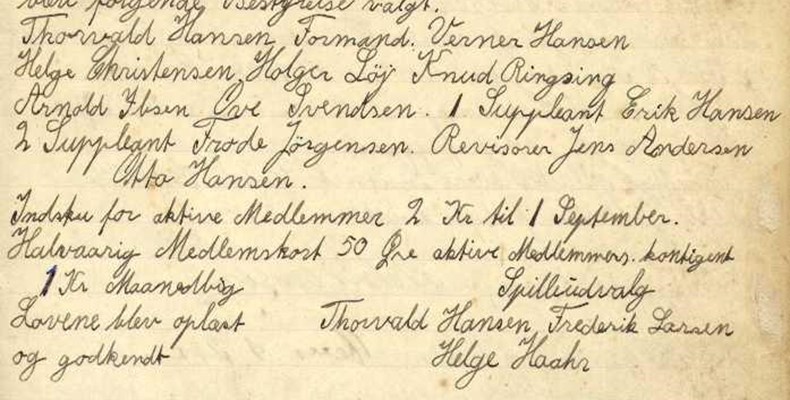 følgende Bestyrelse valgt.
Thorvald Hansen Formand. Verner Hansen
Helge Christensen, Holger Löj Knud Ringsing
Arnold Ibsen Ove Svendsen. 1 Suppleant Erik Hansen
2 Suppleant Frode Jörgensen. Revisorer Jens Andersen
Otto Hansen.
Indsku for aktive Medlemmer 2 Kr til 1 September.
Halvaarig Medlemskort 50 Øre aktive Medlemmers. kontigent
1 Kr Maanedlig Spilleudvalg
Lovene blev oplæst Thorvald Hansen, Frederik Larsen
og godkendt Helge Haahr